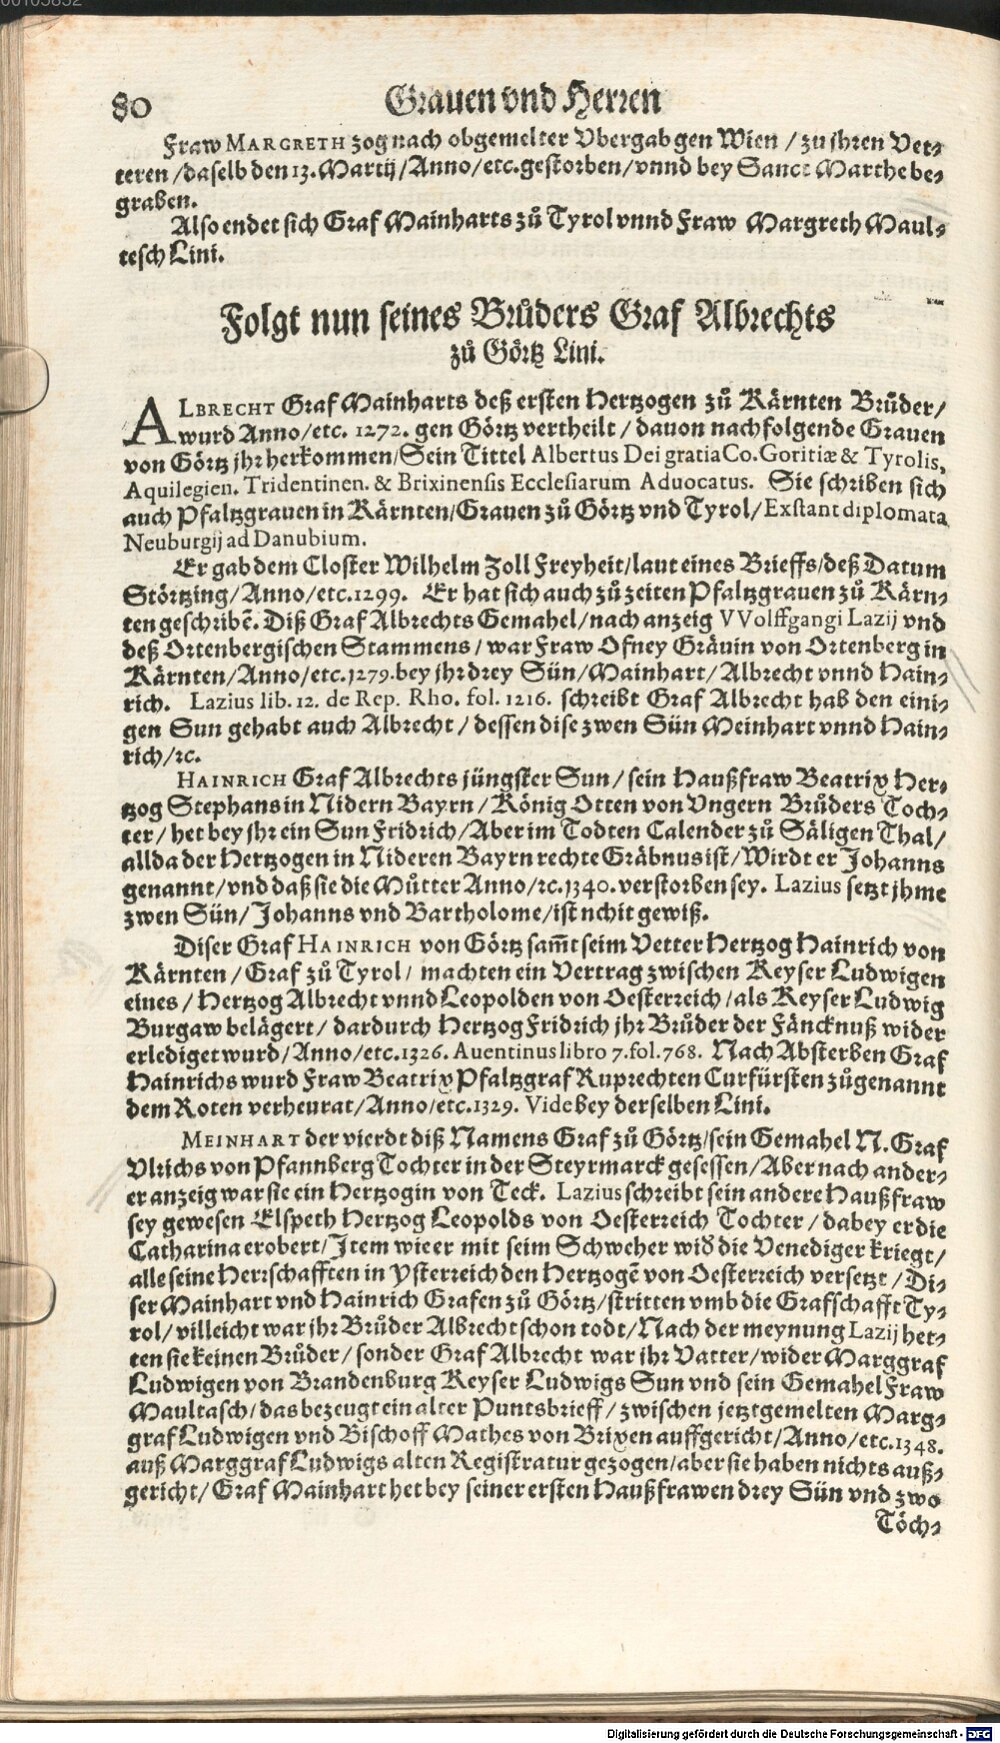 80 Grauen vnd Herren
Fraw MARGRETH zog nach obgemelter Vbergab gen Wien / zu jhren Vet-
teren / daselb den 13. Martij / Anno / etc. gestorben / vnnd bey Sanct Marthe be-
graben.
Also endet sich Graf Mainharts zů Tyrol vnnd Fraw Margreth Maul-
tesch Lini.
Folgt nun seines Brůders Graf Albrechts
zů Görtz Lini.
ALBRECHT Graf Mainharts deß ersten Hertzogen zů Kärnten Brůder /
wurd Anno / etc. 1272. gen Görtz vertheilt / dauon nachfolgende Grauen
von Görtz jhr herkommen / Sein Tittel Albertus Dei gratia Co. Goritiæ & Tyrolis,
Aquilegien. Tridentinen. & Brixinensis Ecclesiarum Aduocatus. Sie schriben sich
auch Pfaltzgrauen in Kärnten / Grauen zů Görtz vnd Tyrol / Exstant diplomata
Neuburgij ad Danubium.
Er gab dem Closter Wilhelm Zoll Freyheit / laut eines Brieffs / deß Datum
Störtzing / Anno / etc. 1299. Er hat sich auch zů zeiten Pfaltzgrauen zů Kärn-
ten geschribē. Diß Graf Albrechts Gemahel / nach anzeig VVolffgangi Lazij vnd
deß Ortenbergischen Stammens / war Fraw Ofney Grävin von Ortenberg in
Kärnten / Anno / etc. 1279. bey jhr drey Sün / Mainhart / Albrecht vnnd Hain-
rich. Lazius lib. 12. de Rep. Rho. fol. 1216. schreibt Graf Albrecht hab den eini-
gen Sun gehabt auch Albrecht / dessen dise zwen Sün Meinhart vnnd Hain-
rich / ꝛc.
HAINRICH Graf Albrechts jüngster Sun / sein Haußfraw Beatrix Her-
tzog Stephans in Nidern Bayrn / König Otten von Vngern Brůders Toch-
ter / het bey jhr ein Sun Fridrich / Aber im Todten Calender zů Säligen Thal /
allda der Hertzogen in Nideren Bayrn rechte Gräbnus ist / Wirdt er Johanns
genannt / vnd daß sie die Můtter Anno / ꝛc. 1340. verstorben sey. Lazius setzt jhme
zwen Sün / Johanns vnd Bartholome / ist nchit gewiß.
Diser Graf HAINRICH von Görtz sam̃t seim Vetter Hertzog Hainrich von
Kärnten / Graf zů Tyrol / machten ein Vertrag zwischen Keyser Ludwigen
eines / Hertzog Albrecht vnnd Leopolden von Oesterreich / als Keyser Ludwig
Burgaw belägert / dardurch Hertzog Fridrich jhr Brůder der Fäncknuß wider
erlediget wurd / Anno / etc. 1326. Auentinus libro 7. fol. 768. Nach Absterben Graf
Hainrichs wurd Fraw Beatrix Pfaltzgraf Ruprechten Curfürsten zůgenannt
dem Roten verheurat / Anno / etc. 1329. Vide bey derselben Lini.
MEINHART der vierdt diß Namens Graf zů Görtz / sein Gemahel N. Graf
Vlrichs von Pfannberg Tochter in der Steyrmarck gesessen / Aber nach ander-
er anzeig war sie ein Hertzogin von Teck. Lazius schreibt sein andere Haußfraw
sey gewesen Elspeth Hertzog Leopolds von Oesterreich Tochter / dabey er die
Catharina erobert / Item wie er mit seim Schweher wid̃ die Venediger kriegt /
alle seine Herrschafften in Ysterreich den Hertzogē von Oesterreich versetzt / Di-
ser Mainhart vnd Hainrich Grafen zů Görtz / stritten vmb die Grafschafft Ty-
rol / villeicht war jhr Brůder Albrecht schon todt / Nach der meynung Lazij het-
ten sie keinen Brůder / sonder Graf Albrecht war jhr Vatter / wider Marggraf
Ludwigen von Brandenburg Keyser Ludwigs Sun vnd sein Gemahel Fraw
Maultasch / das bezeugt ein alter Puntsbrieff / zwischen jetztgemelten Marg-
graf Ludwigen vnd Bischoff Mathes von Brixen auffgericht / Anno / etc. 1348.
auß Marggraf Ludwigs alten Registratur gezogen / aber sie haben nichts auß-
gericht / Graf Mainhart het bey seiner ersten Haußfrawen drey Sün vnd zwo
Töch-
Digitalisierung gefördert durch die Deutsche Forschungsgemeinschaft - DFG